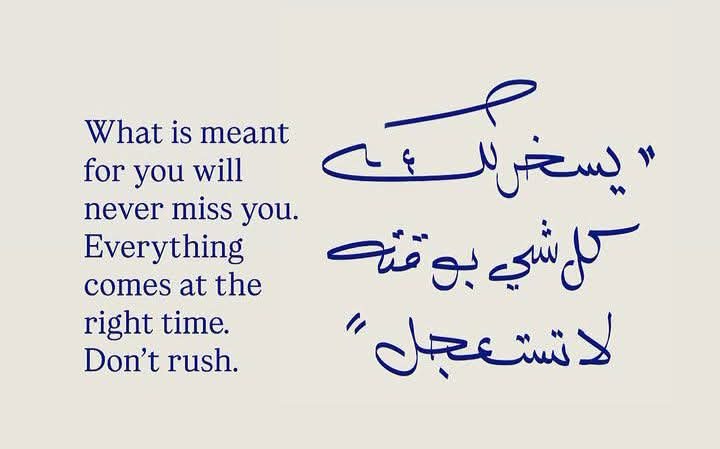 What is meant
for you will
never miss you.
Everything
comes at the
right time.
Don’t rush.
"يسخرلك
كل شي بوقته
لا تستعجل"